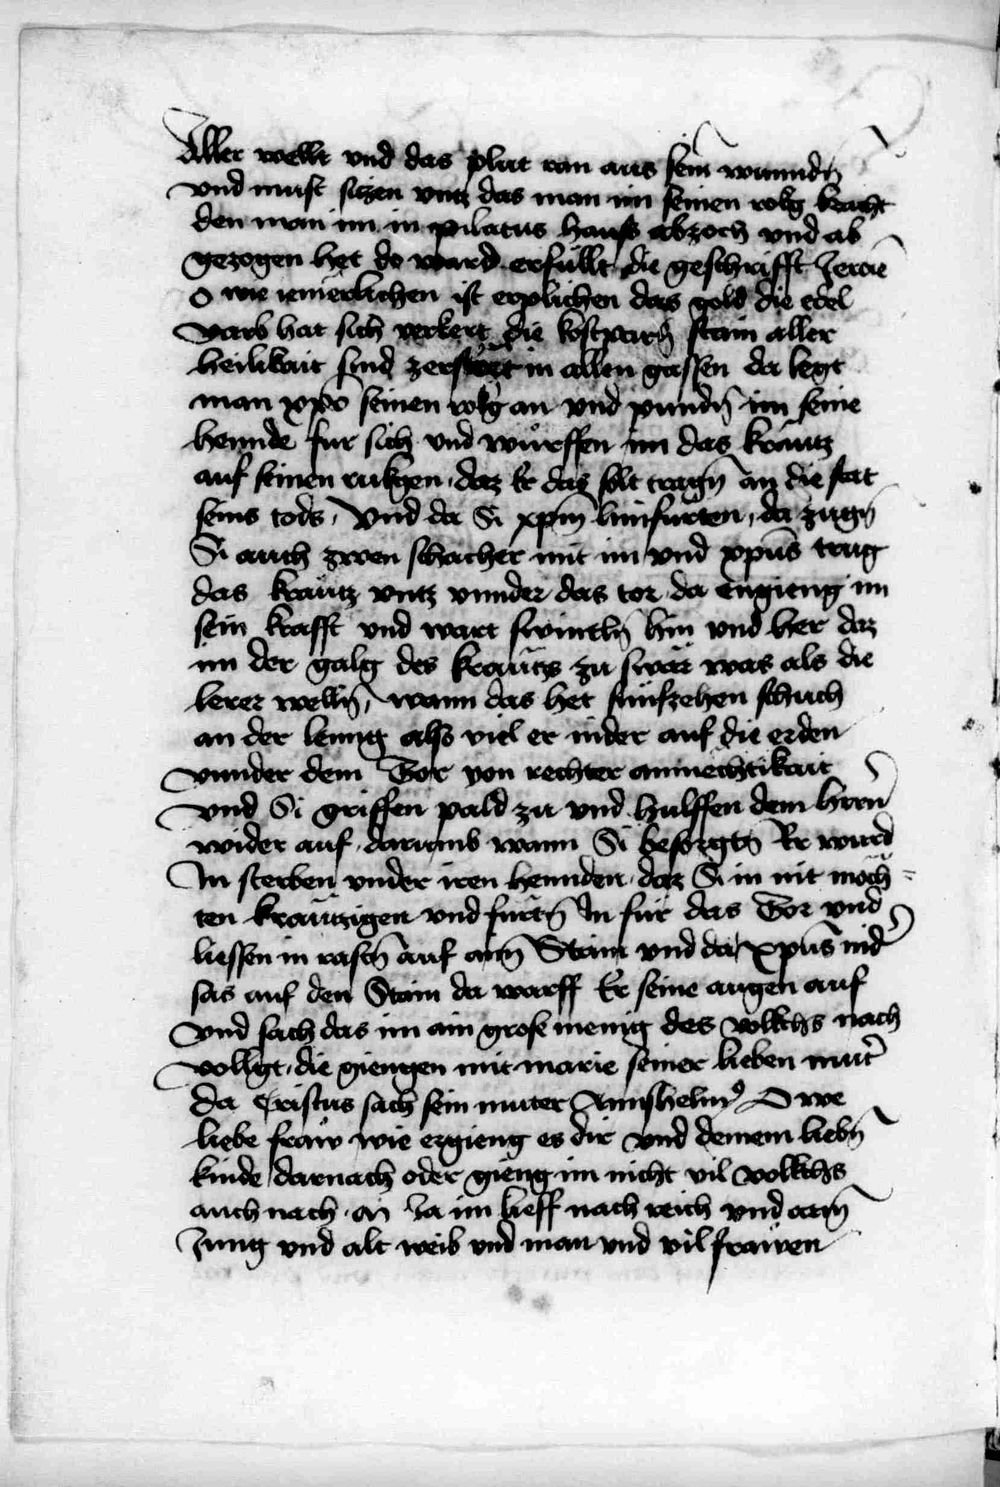 Aller wellt vnd das plut ran aus sein̄ wunndn̄
vnd must siczen vntz das man im seinen rokg bracht
den man im in pilatus haus abzoch vnd ab
gezogen het do ward erfullt die geschrifft Jeremie
O wie iemerlichen ist erplichen das gold die edel
varb hat sich verkert die kostparn̄ stain aller
heilikait sind zerströt in allen gassen da legt
man xp̄o seinen rokg an vnd pundn̄ im seine
hennde fur sich vnd wůrffen im das kräutz
auf seinen rukgen daz Er das solt tragn̄ an die stat
seins tods, Vnd da Si xpm̄ hinfürten, da zugn̄
Si auch zwen schacher mit im vnd xpūs trug
das kräutz vntz vnnder das tor da engieng im
sein krafft vnd wart swinteln̄ hin vnd her daz
im der galg des kräutz zu swär was als die
lerer welln̄, wann das het funfzehen schuch
an der leng also viel er nider auf die erden
vnnder dem Tor von rechter anmechtikait
vnd Si griffen pald zu vnd hulffen dem herrn̄
wider auf darumb wann Si besorgtn̄ Er wurd
In sterben vnder iren hennden daz Si in nit möch-
ten kräutzigen vnd furtn̄ In für das Tor vnd
liessen in rastn̄ auf ainn̄ Stain vnd da xpūs nid̾
sas auf den Stain da warff Er seine augen auf
vnd sach das im ain grose menig des volkchs nach
vollgt, die giengen mit marie seiner lieben mut̾
da Cristus sach sein muter Annshelmꝰ O we
liebe fraw wie ergieng es dir vnd deinem liebn̄
kinde darnach oder gieng im nicht vil volkchs
auch nach an Ja im lieff nach reich vnd arm̄
Jung vnd alt weib vnd man vnd vil frawen